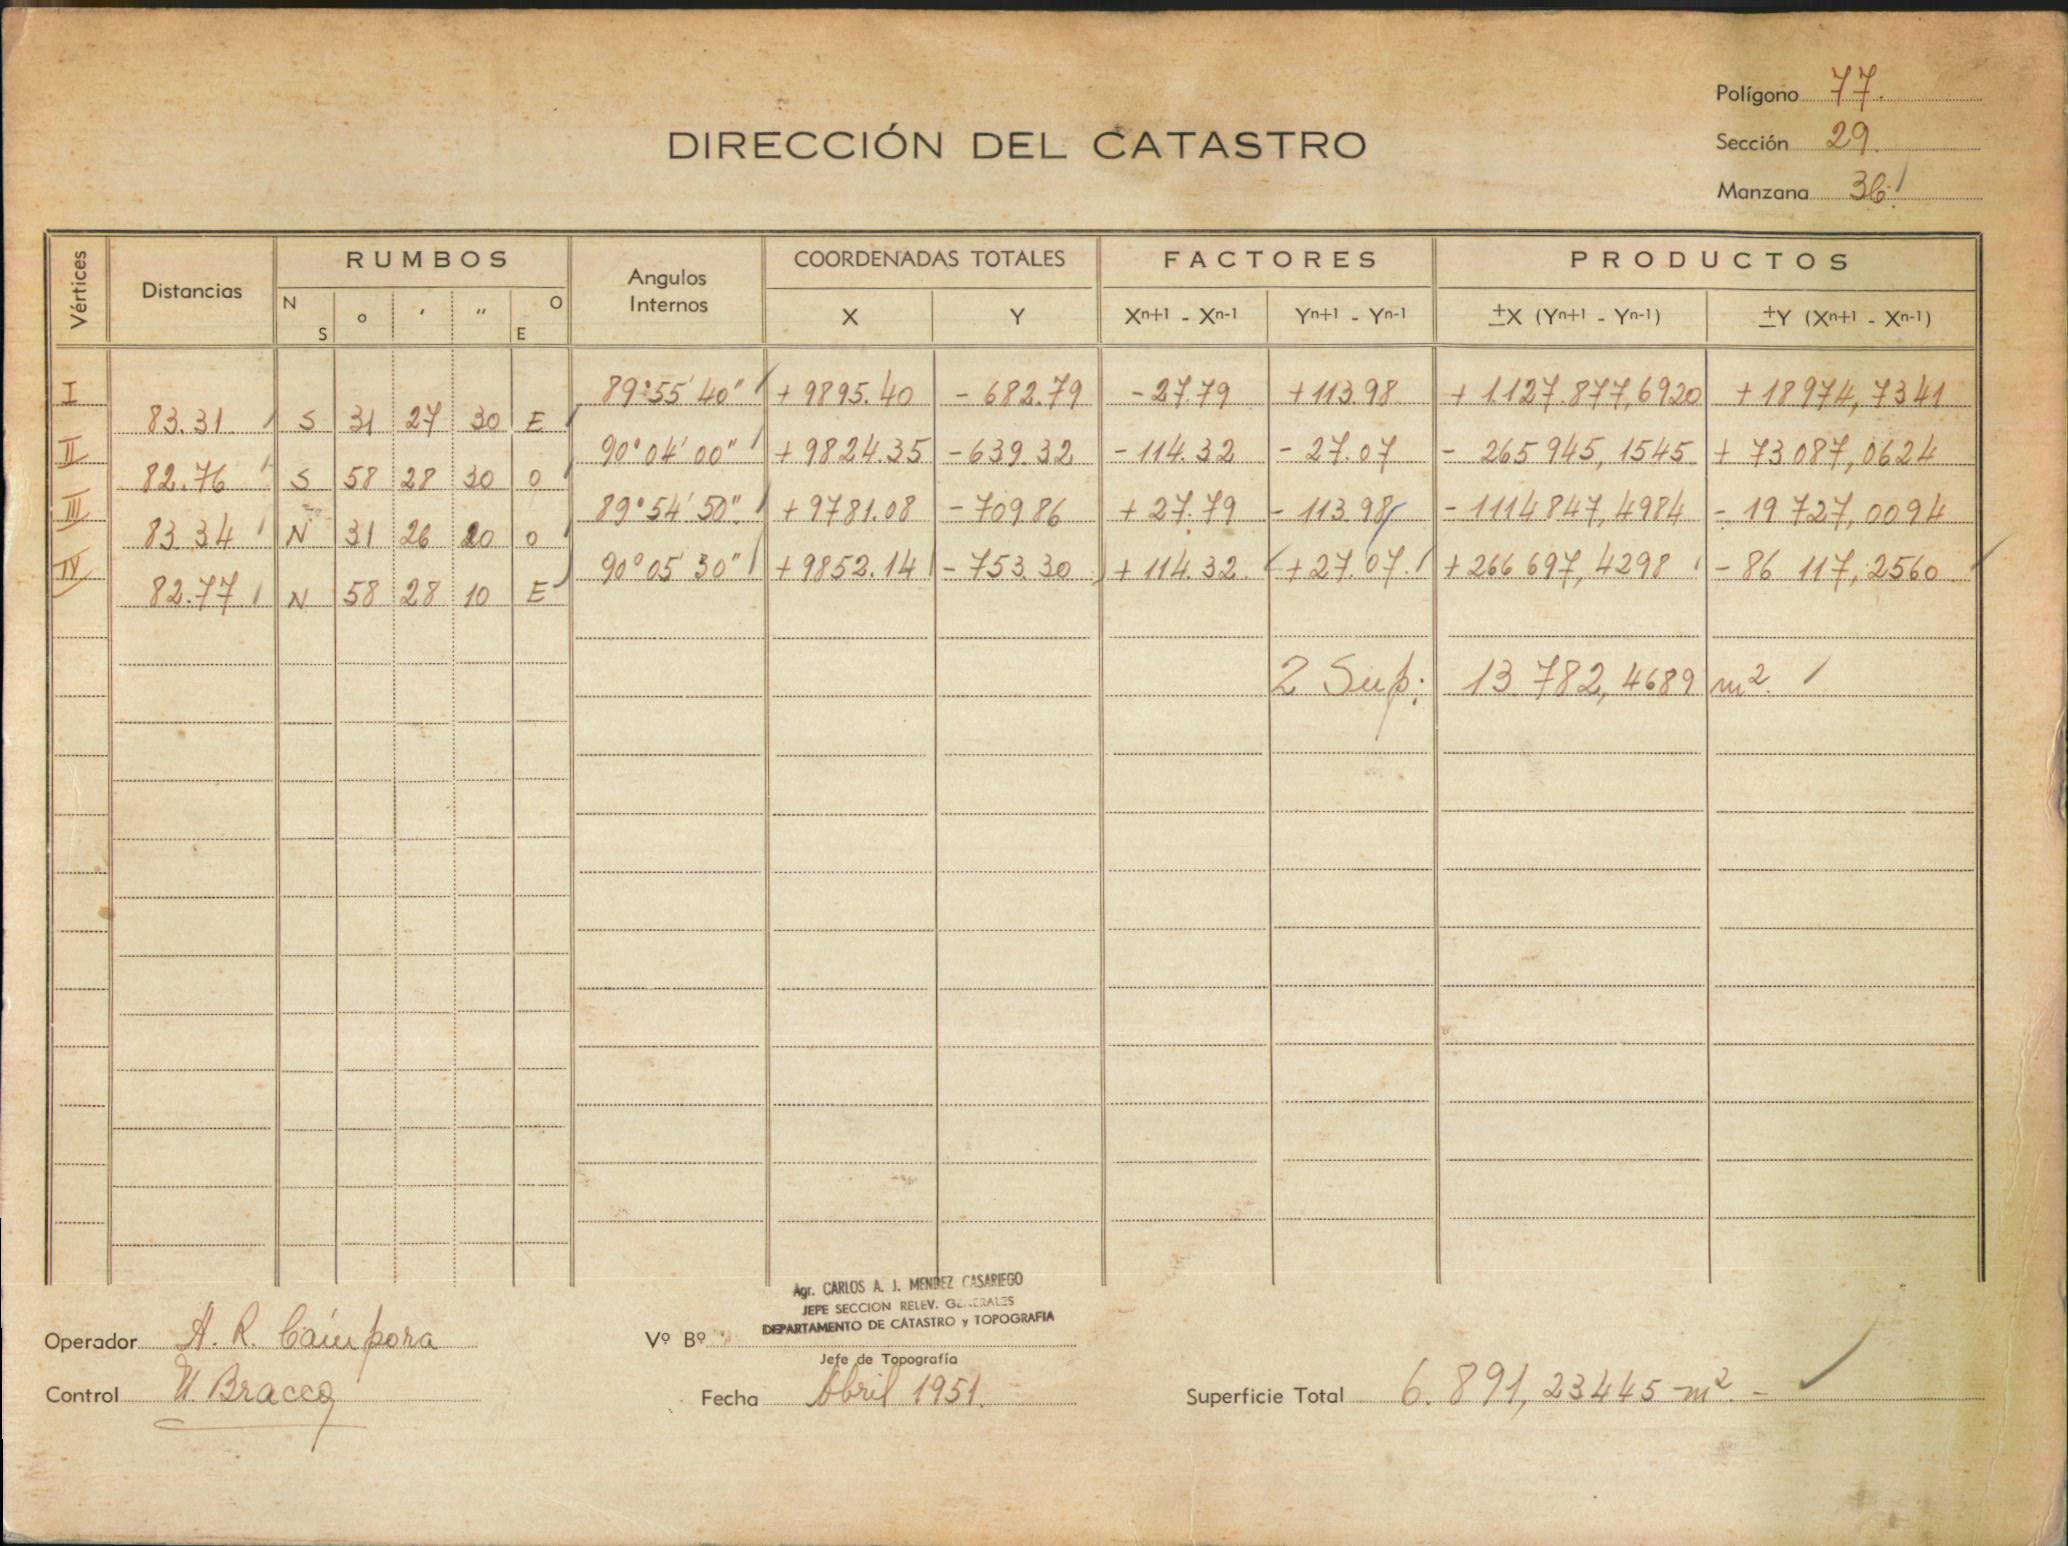 Polígono 77.
DIRECCIÓN DEL CATASTRO
Sección 29.
Manzana 36.
Vértices Distancias RUMBOS Angulos Internos COORDENADAS TOTALES FACTORES PRODUCTOS
N S o ' " O E X Y Xn+1 - Xn-1 Yn+1 - Yn-1 ±X (Yn+1 - Yn-1) ±Y (Xn+1 - Xn-1)
I 89°55'40" +9895.40 -682.79 -27.79 +113.98 +1127.877,6920 +18974,7341
83.31 S 31 27 30 E
II 90°04'00" +9824.35 -639.32 -114.32 -27.07 -265945,1545 +73087,0624
82.76 S 58 28 30 O
III 89°54'50" +9781.08 -709.86 +27.79 -113.98 -1114847,4984 -19727,0094
83.34 N 31 26 20 O
IV 90°05'30" +9852.14 -753.30 +114.32 +27.07 +266697,4298 -86117,2560
82.77 N 58 28 10 E
2 Sup: 13.782,4689 m2.
Agr. CARLOS A. J. MENDEZ CASARIEGO
JEFE SECCION RELEV. GENERALES
DEPARTAMENTO DE CATASTRO y TOPOGRAFIA
Operador A. R. Cámpora
Vº Bº
Jefe de Topografía
Control Bracco
Fecha Abril 1951.
Superficie Total 6.891,23445 m2.-